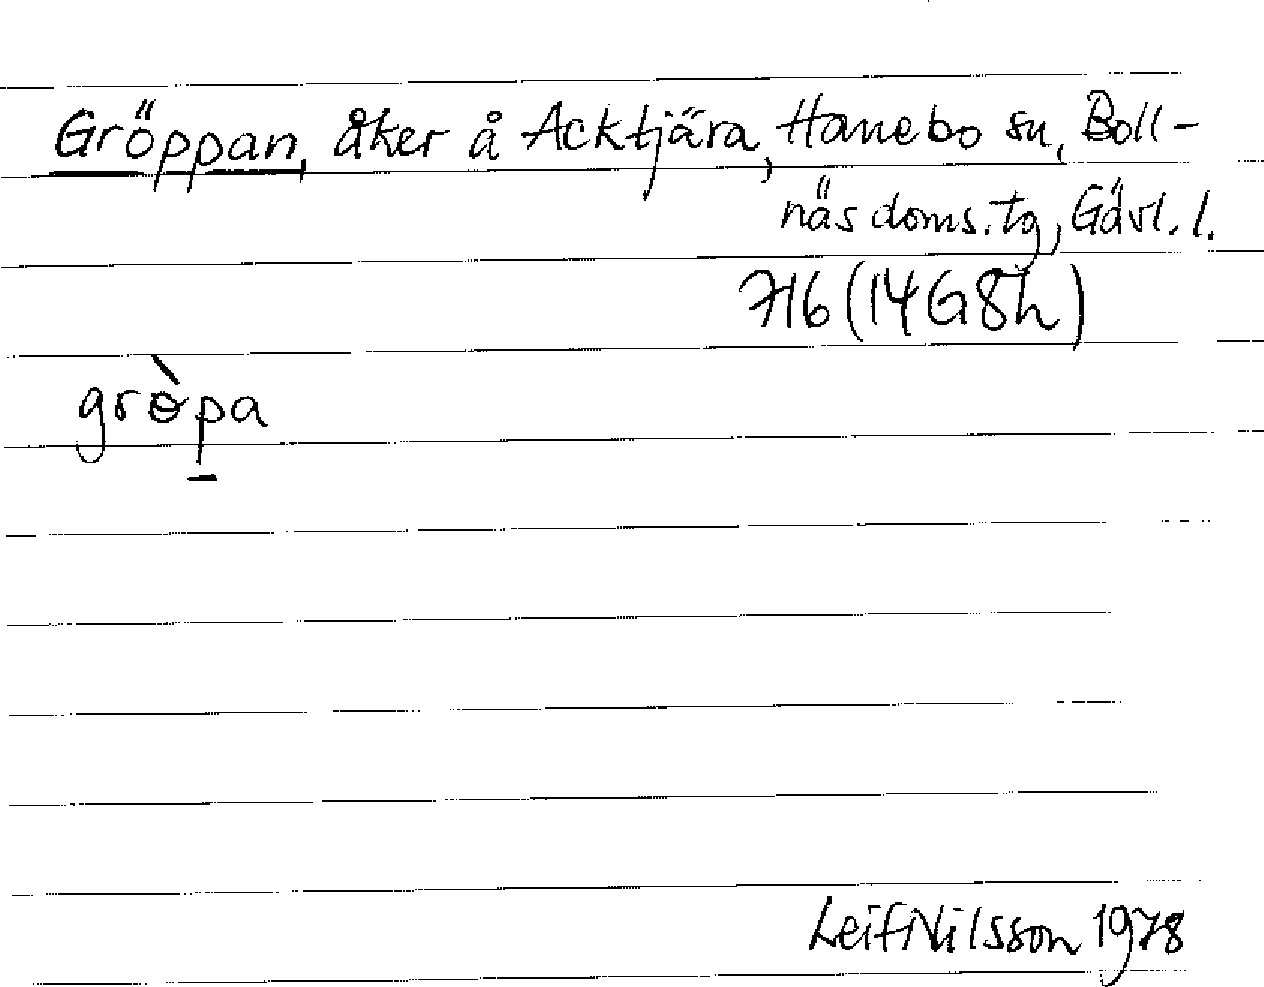 Gröppan, åker å Acktjära, Hanebo sn, Boll-
näs doms. tg, Gävl. l.
716 (14G8h)
grɵ̀pa
Leif Nilsson 1978